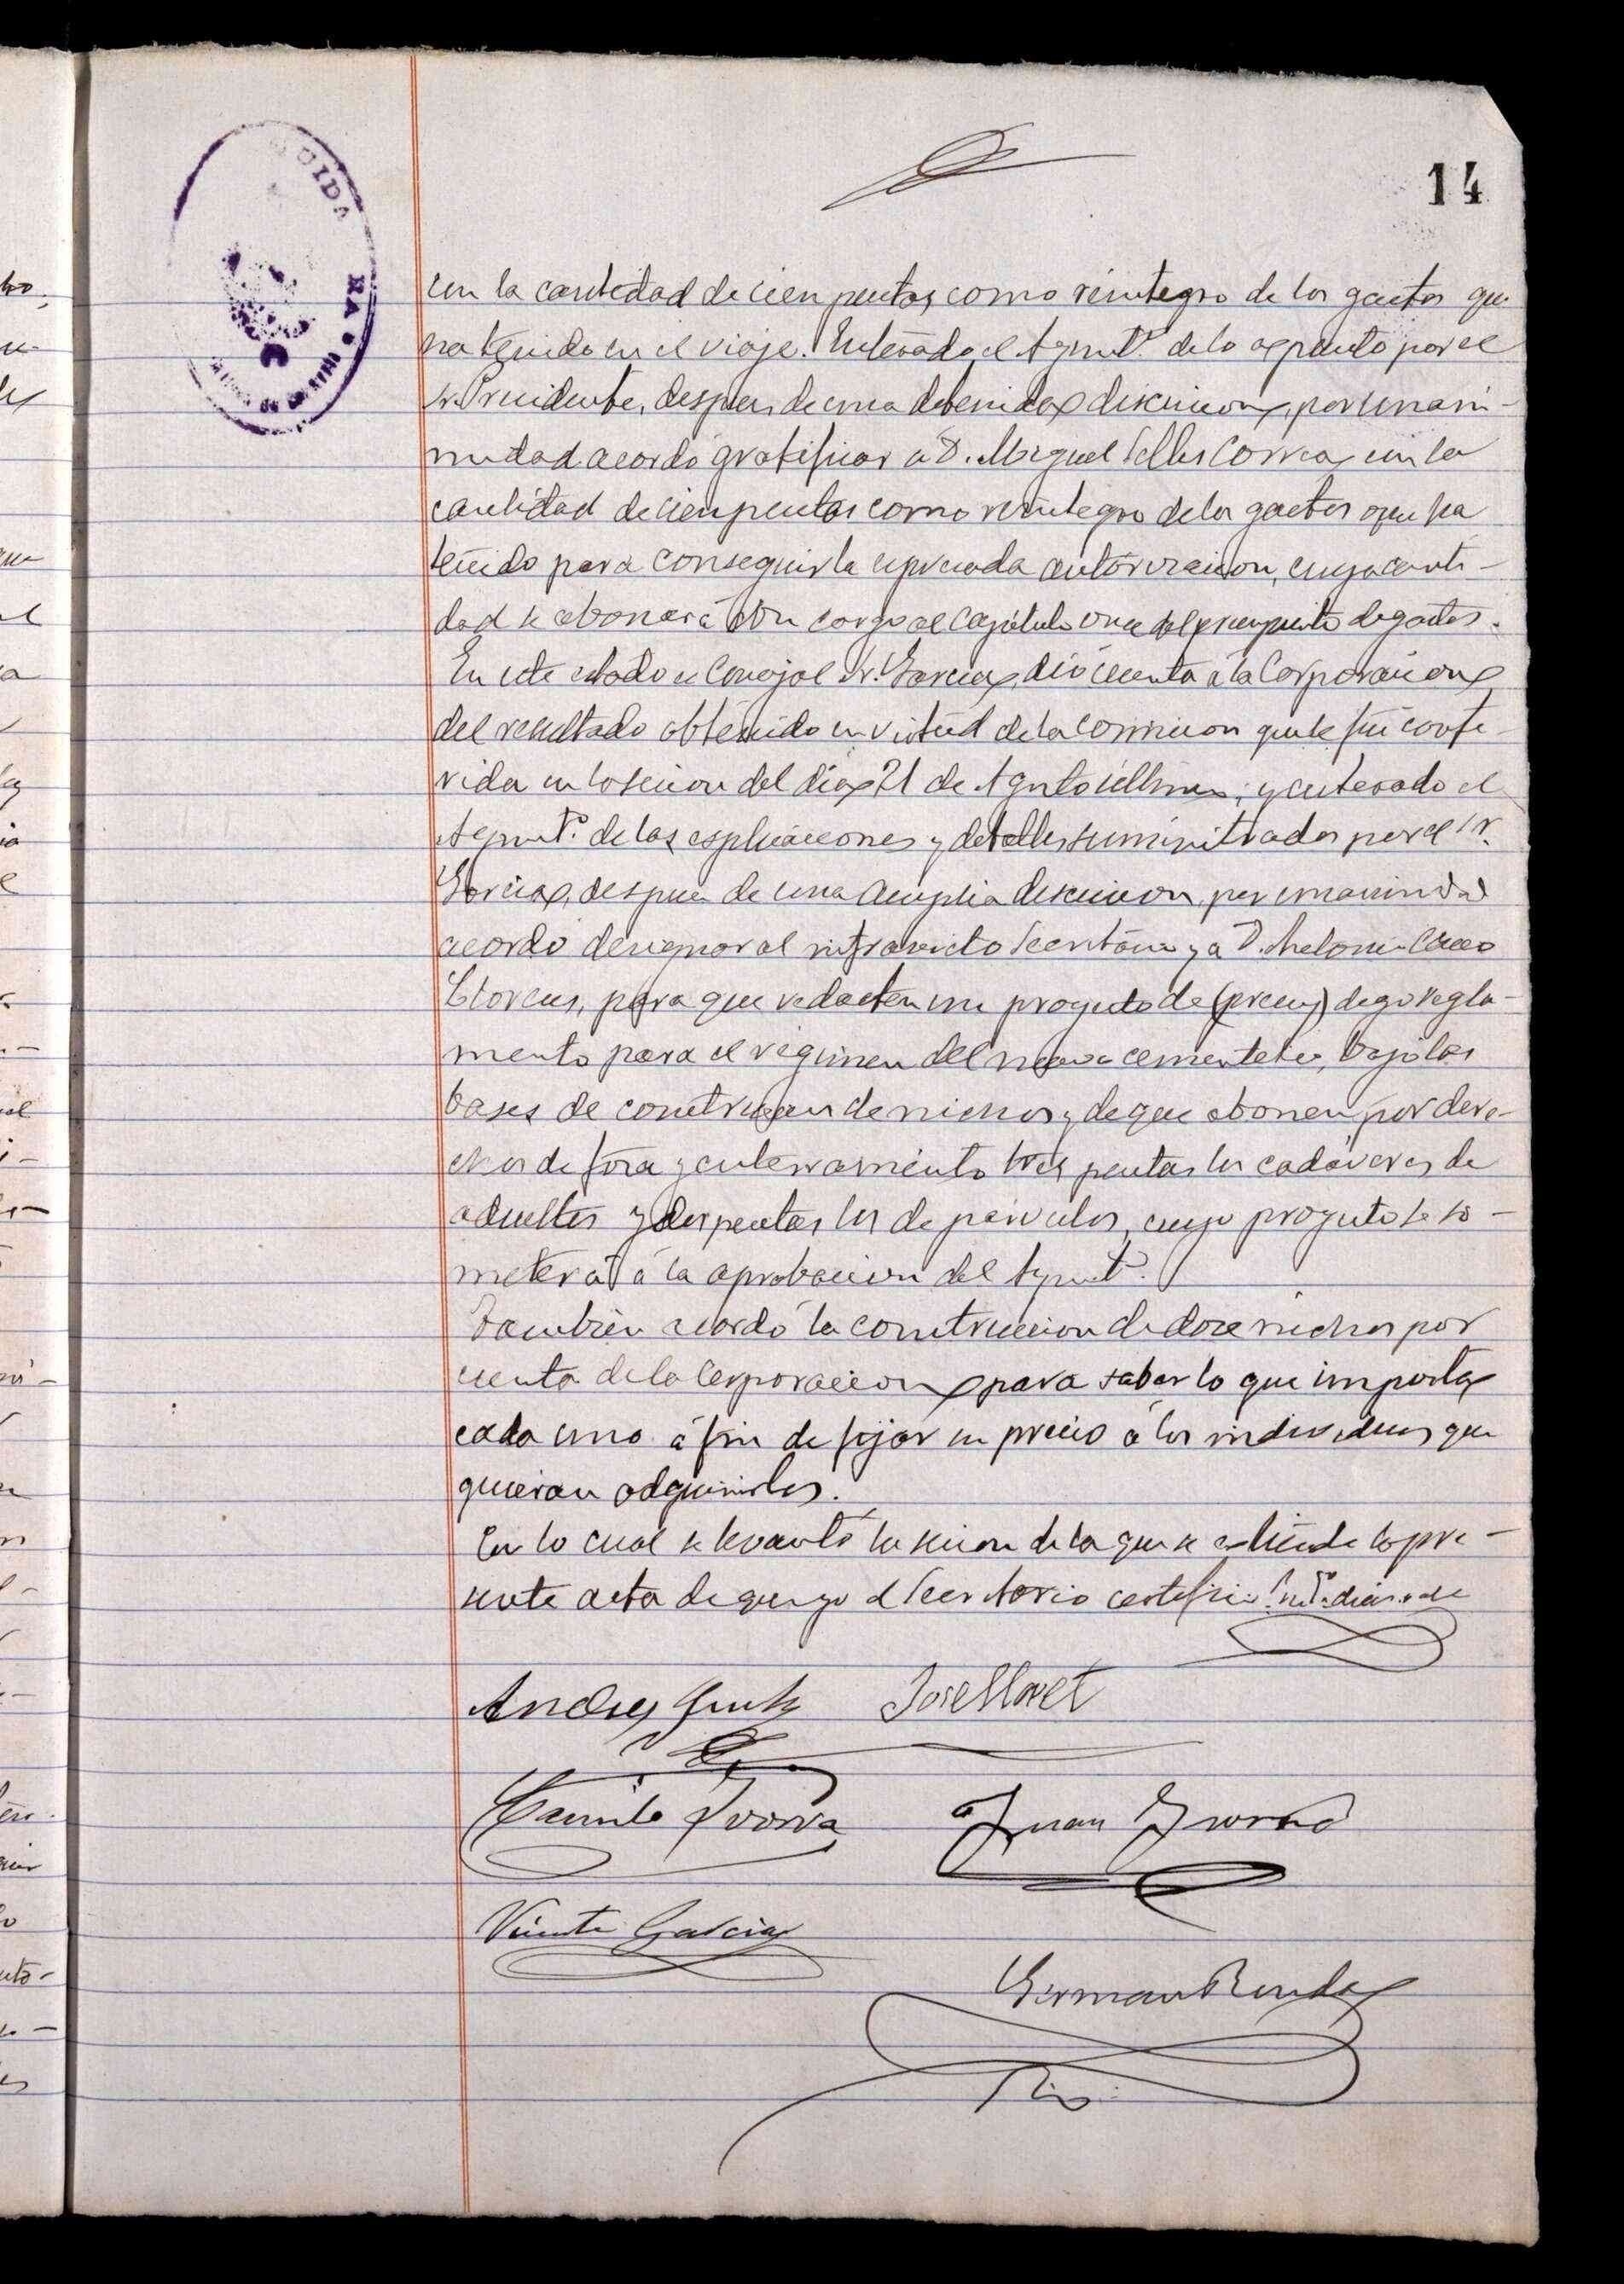 14
con la cantidad de cien pesetas, como reintegro de los gastos que
ha tenido en el viaje. Enterado el Ayunt.º de lo expuesto por el
Sr. Presidente, despues de una detenida discusion, por unani-
midad acordó gratificar a D. Miguel Selles Correa con la
cantidad de cien pesetas como reintegro de los gastos que ha
tenido para conseguir la espresada autorizacion, cuya canti-
dad se abonará con cargo al Capitulo once del presupuesto de gastos.
En este estado el Concejal Sr. Garcia, dió cuenta á la Corporacion
del resultado obtenido en virtud de la comision que le fué confe-
rida en la sesion del dia 21 de Agosto ultimo; y enterado el
Ayunt.º de las esplicaciones y detalles suministrados por el Sr.
Garcia, despues de una amplia discusion, por unanimidad
acordó designar al infrascrito Secretario y a D.
Llorens, para que redacten un proyecto de (presu) digo regla-
mento para el régimen del nuevo cementerio, bajo las
bases de construccion de nichos y de que abonen por dere-
chos de fosa y enterramiento tres pesetas los cadáveres de
adultos y dos pesetas los de párvulos, cuyo proyecto se so-
meterá á la aprobacion del Ayunt.º
Tambien acordó la construccion de doce nichos por
cuenta de la Corporacion para saber lo que importa
cada uno á fin de fijar su precio á los individuos que
quieran adquirirlos.
Con lo cual se levantó la sesion de la que se estiende la pre-
sente acta de que yo el Secretario certifico.
Andres José Lloret
Camilo Yvorra Juan Yvorra
Vicente Garcia
German Ronda
Srio.